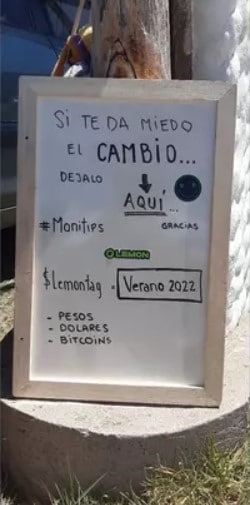 SI TE DA MIEDO
EL CAMBIO...
DEJALO
AQUÍ...
#Monitips GRACIAS
LEMON
$lemontag = Verano 2022
- PESOS
- DOLARES
- BITCOINS